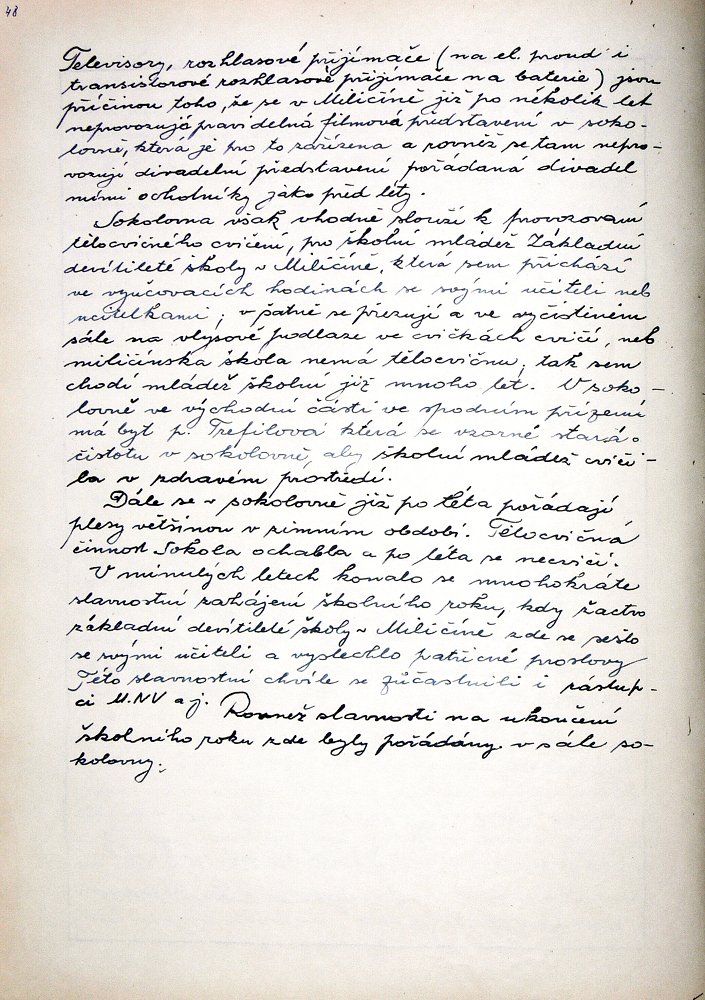 48
Televisory, rozhlasové přijímače (na el. proud i
transistorové rozhlasové přijímače na baterie) jsou
příčinou toho, že se v Miličíně již po několik let
neprovozují pravidelná filmová představení v soko-
lovně, která je pro to zařízena a rovněž se tam nepro-
vozují divadelní představení pořádaná divadel
ními ochotníky jako před léty.
Sokolovna však vhodně slouží k provozovaní
tělocvičného cvičení, pro školní mládež Základní
devítileté školy v Miličíně, která sem přichází
ve vyučovacích hodinách se svými učiteli neb
učitelkami; v šatně se přezují a ve vyčistěném
sále na vlysové podlaze ve cvičkách cvičí, neb
miličínska škola nemá tělocvičnu, tak sem
chodí mládež školní již mnoho let. V soko-
lovně ve východní části ve spodním přízemí
má byt p. Trefilová která se vzorně stará o
čistotu v sokolovně, aby školní mládež cviči-
la v zdravém prostředí.
Dále se v sokolovně již po léta pořádají
plesy většinou v zimním období. Tělocvičná
činnost Sokola ochabla a po léta se necvičí.
V minulých letech konalo se mnohokráte
slavnostní zahájení školního roku, kdy žactvo
základní devítileté školy v Miličíně zde se sešlo
se svými učiteli a vyslechlo patřičné proslovy
Této slavnostní chvíle se zůčastnili i zástup-
ci M.NV a j. Rovnež slavnosti na ukončení
školního roku zde byly pořádány v sále so-
kolovny.